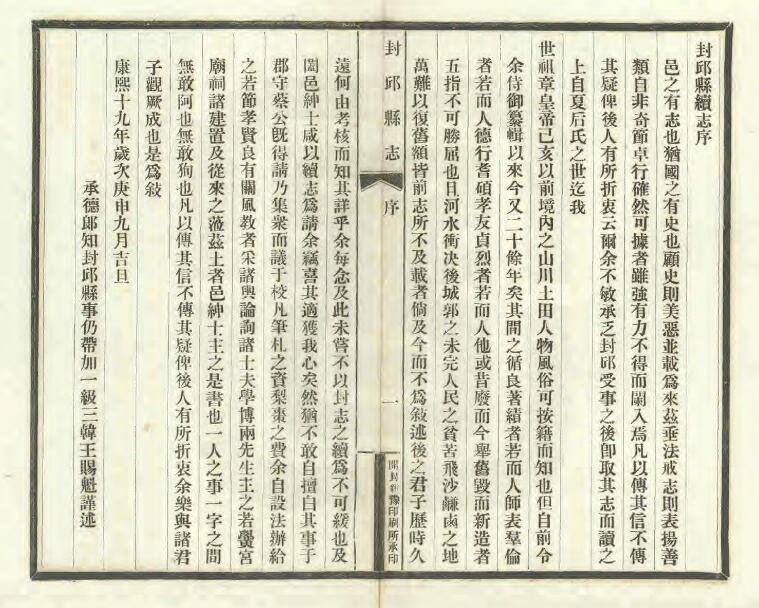 封邱縣續志序
邑之有志也猶國之有史也顧史則美惡並載爲來茲垂法戒志則表揚善
類自非奇節卓行確然可據者雖強有力不得而闌入焉凡以傳其信不傳
其疑俾後人有所折衷云爾余不敏承乏封邱受事之後卽取其志而讀之
上自夏后氏之世迄我
世祖章皇帝己亥以前境內之山川土田人物風俗可按籍而知也但自前令
余侍御纂輯以來今又二十餘年矣其間之循良著績者若而人師表羣倫
者若而人德行耆碩孝友貞烈者若而人他或昔廢而今舉舊毀而新造者
五指不可勝屈也且河水衝决後城郭之未完人民之貧苦飛沙鹻鹵之地
萬難以復舊額皆前志所不及載者倘及今而不爲敍述後之君子歷時久
封邱縣志
序
一
開封新豫印刷所承印
遠何由考核而知其詳乎余每念及此未嘗不以封志之續爲不可緩也及
闔邑紳士咸以續志爲請余竊喜其適獲我心矣然猶不敢自擅白其事于
郡守蔡公旣得請乃集衆而議于校凡筆札之資梨棗之費余自設法辦給
之若節孝賢良有關風敎者采諸輿論詢諸士夫學博兩先生主之若黌宮
廟祠諸建置及從來之蒞茲土者邑紳士主之是書也一人之事一字之間
無敢阿也無敢狥也凡以傳其信不傳其疑俾後人有所折衷余樂與諸君
子觀厥成也是爲敍
康熙十九年歲次庚申九月吉旦
承德郎知封邱縣事仍帶加一級三韓王賜魁謹述